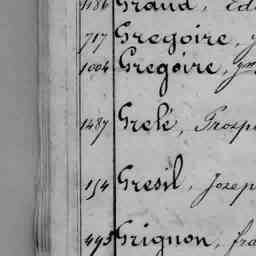 1186 Graud, Ed
717 Gregoire, J
1004 Gregoire, Jm
1487 Grelé, Prosp
154 Gresil, Josep
493 Grignon, fra